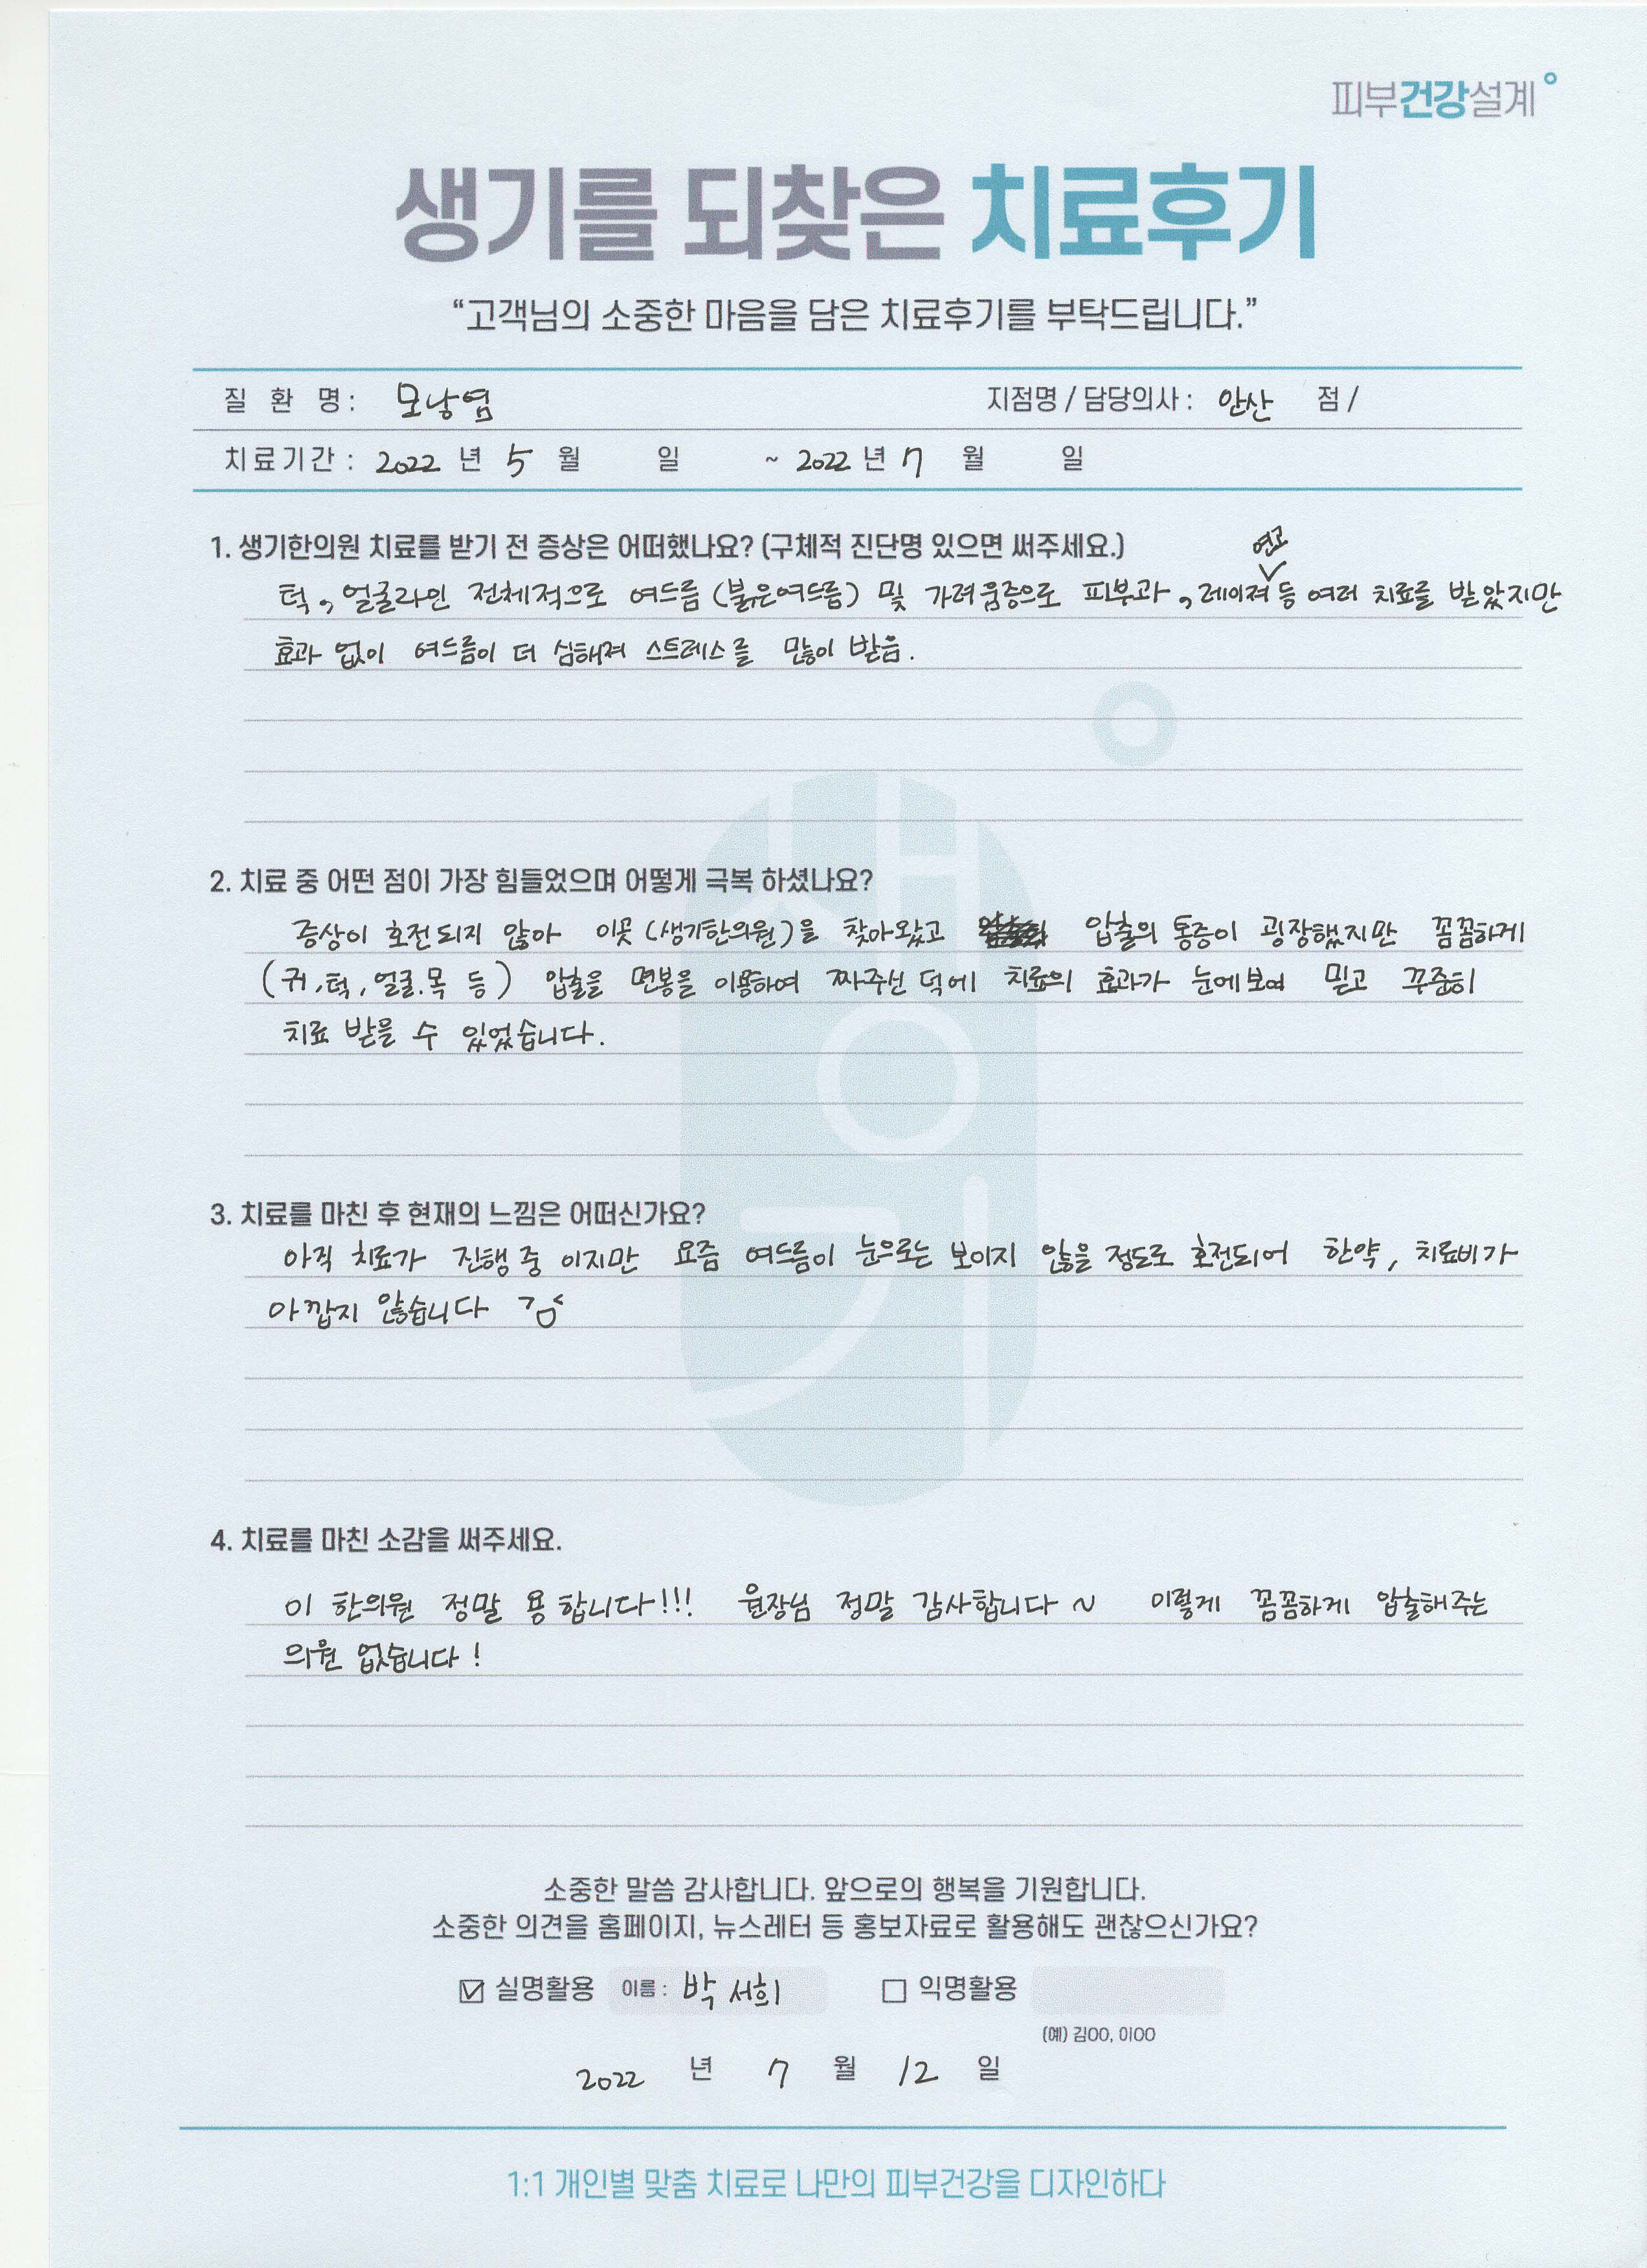 피부건강설계
생기를 되찾은 치료후기
“고객님의 소중한 마음을 담은 치료후기를 부탁드립니다.”
질 환 명 : 모낭염 지점명 / 담당의사 : 안산 점 /
치료기간 : 2022 년 5 월 일 ~ 2022 년 7 월 일
1. 생기한의원 치료를 받기 전 증상은 어떠했나요? (구체적 진단명 있으면 써주세요.)
연고
턱, 얼굴라인 전체적으로 여드름 (붉은여드름) 및 가려움증으로 피부과, 레이져 등 여러 치료를 받았지만
효과 없이 여드름이 더 심해져 스트레스를 많이 받음.
2. 치료 중 어떤 점이 가장 힘들었으며 어떻게 극복 하셨나요?
증상이 호전되지 않아 이곳 (생기한의원)을 찾아왔고 압출의 통증이 굉장했지만 꼼꼼하게
(귀, 턱, 얼굴. 목 등) 압출을 면봉을 이용하여 짜주신 덕에 치료의 효과가 눈에보여 믿고 꾸준히
치료 받을 수 있었습니다.
3. 치료를 마친 후 현재의 느낌은 어떠신가요?
아직 치료가 진행중 이지만 요즘 여드름이 눈으로는 보이지 않을 정도로 호전되어 한약, 치료비가
아깝지 않습니다
4. 치료를 마친 소감을 써주세요.
이 한의원 정말 용합니다!!! 원장님 정말 감사합니다~ 이렇게 꼼꼼하게 압출해주는
의원 없습니다!
소중한 말씀 감사합니다. 앞으로의 행복을 기원합니다.
소중한 의견을 홈페이지, 뉴스레터 등 홍보자료로 활용해도 괜찮으신가요?
☑ 실명활용 이름 : 박서희 ☐ 익명활용
(예) 김OO, 이OO
2022 년 7 월 12 일
1:1 개인별 맞춤 치료로 나만의 피부건강을 디자인하다